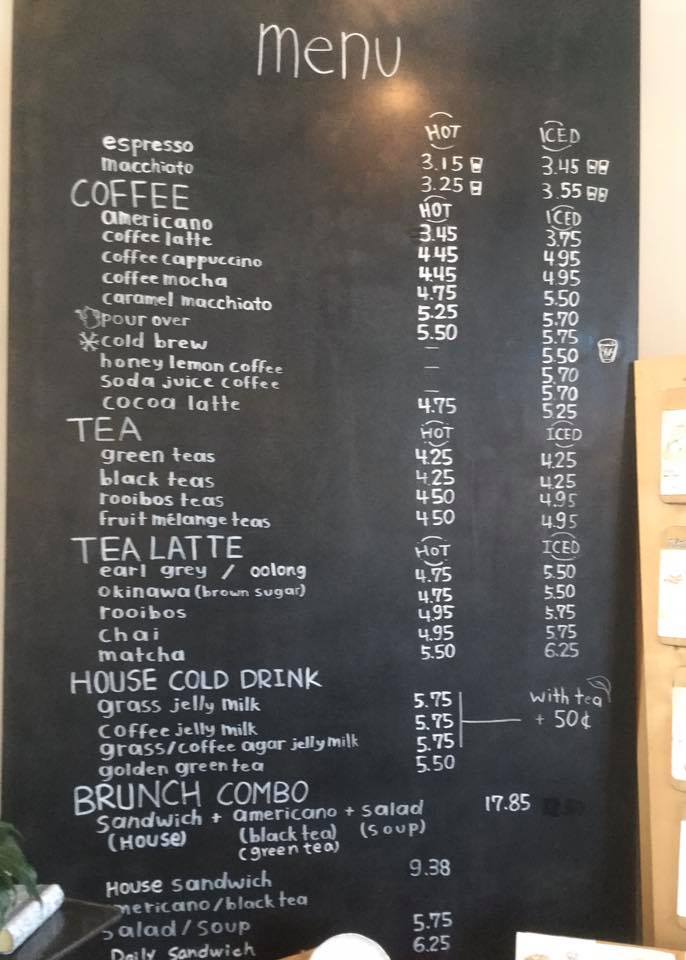 menu
HOT ICED
espresso 3.15 3.45
macchiato 3.25 3.55
COFFEE HOT ICED
americano 3.45 3.75
coffee latte 4.45 4.95
coffee cappuccino 4.45 4.95
coffee mocha 4.75 5.50
caramel macchiato 5.25 5.70
pour over 5.50 5.75
cold brew – 5.50
honey lemon coffee – 5.70
soda juice coffee – 5.70
cocoa latte 4.75 5.25
TEA HOT ICED
green teas 4.25 4.25
black teas 4.25 4.25
rooibos teas 4.50 4.95
fruit mélange teas 4.50 4.95
TEA LATTE HOT ICED
earl grey / oolong 4.75 5.50
okinawa (brown sugar) 4.75 5.50
rooibos 4.95 5.75
chai 4.95 5.75
matcha 5.50 6.25
HOUSE COLD DRINK
grass jelly milk 5.75 with tea
coffee jelly milk 5.75 + 50¢
grass/coffee agar jelly milk 5.75
golden green tea 5.50
BRUNCH COMBO
Sandwich + americano + salad 17.85
(HOUSE) (black tea) (soup)
(green tea)
House Sandwich 9.38
mericano/black tea
salad/soup 5.75
Daily Sandwich 6.25